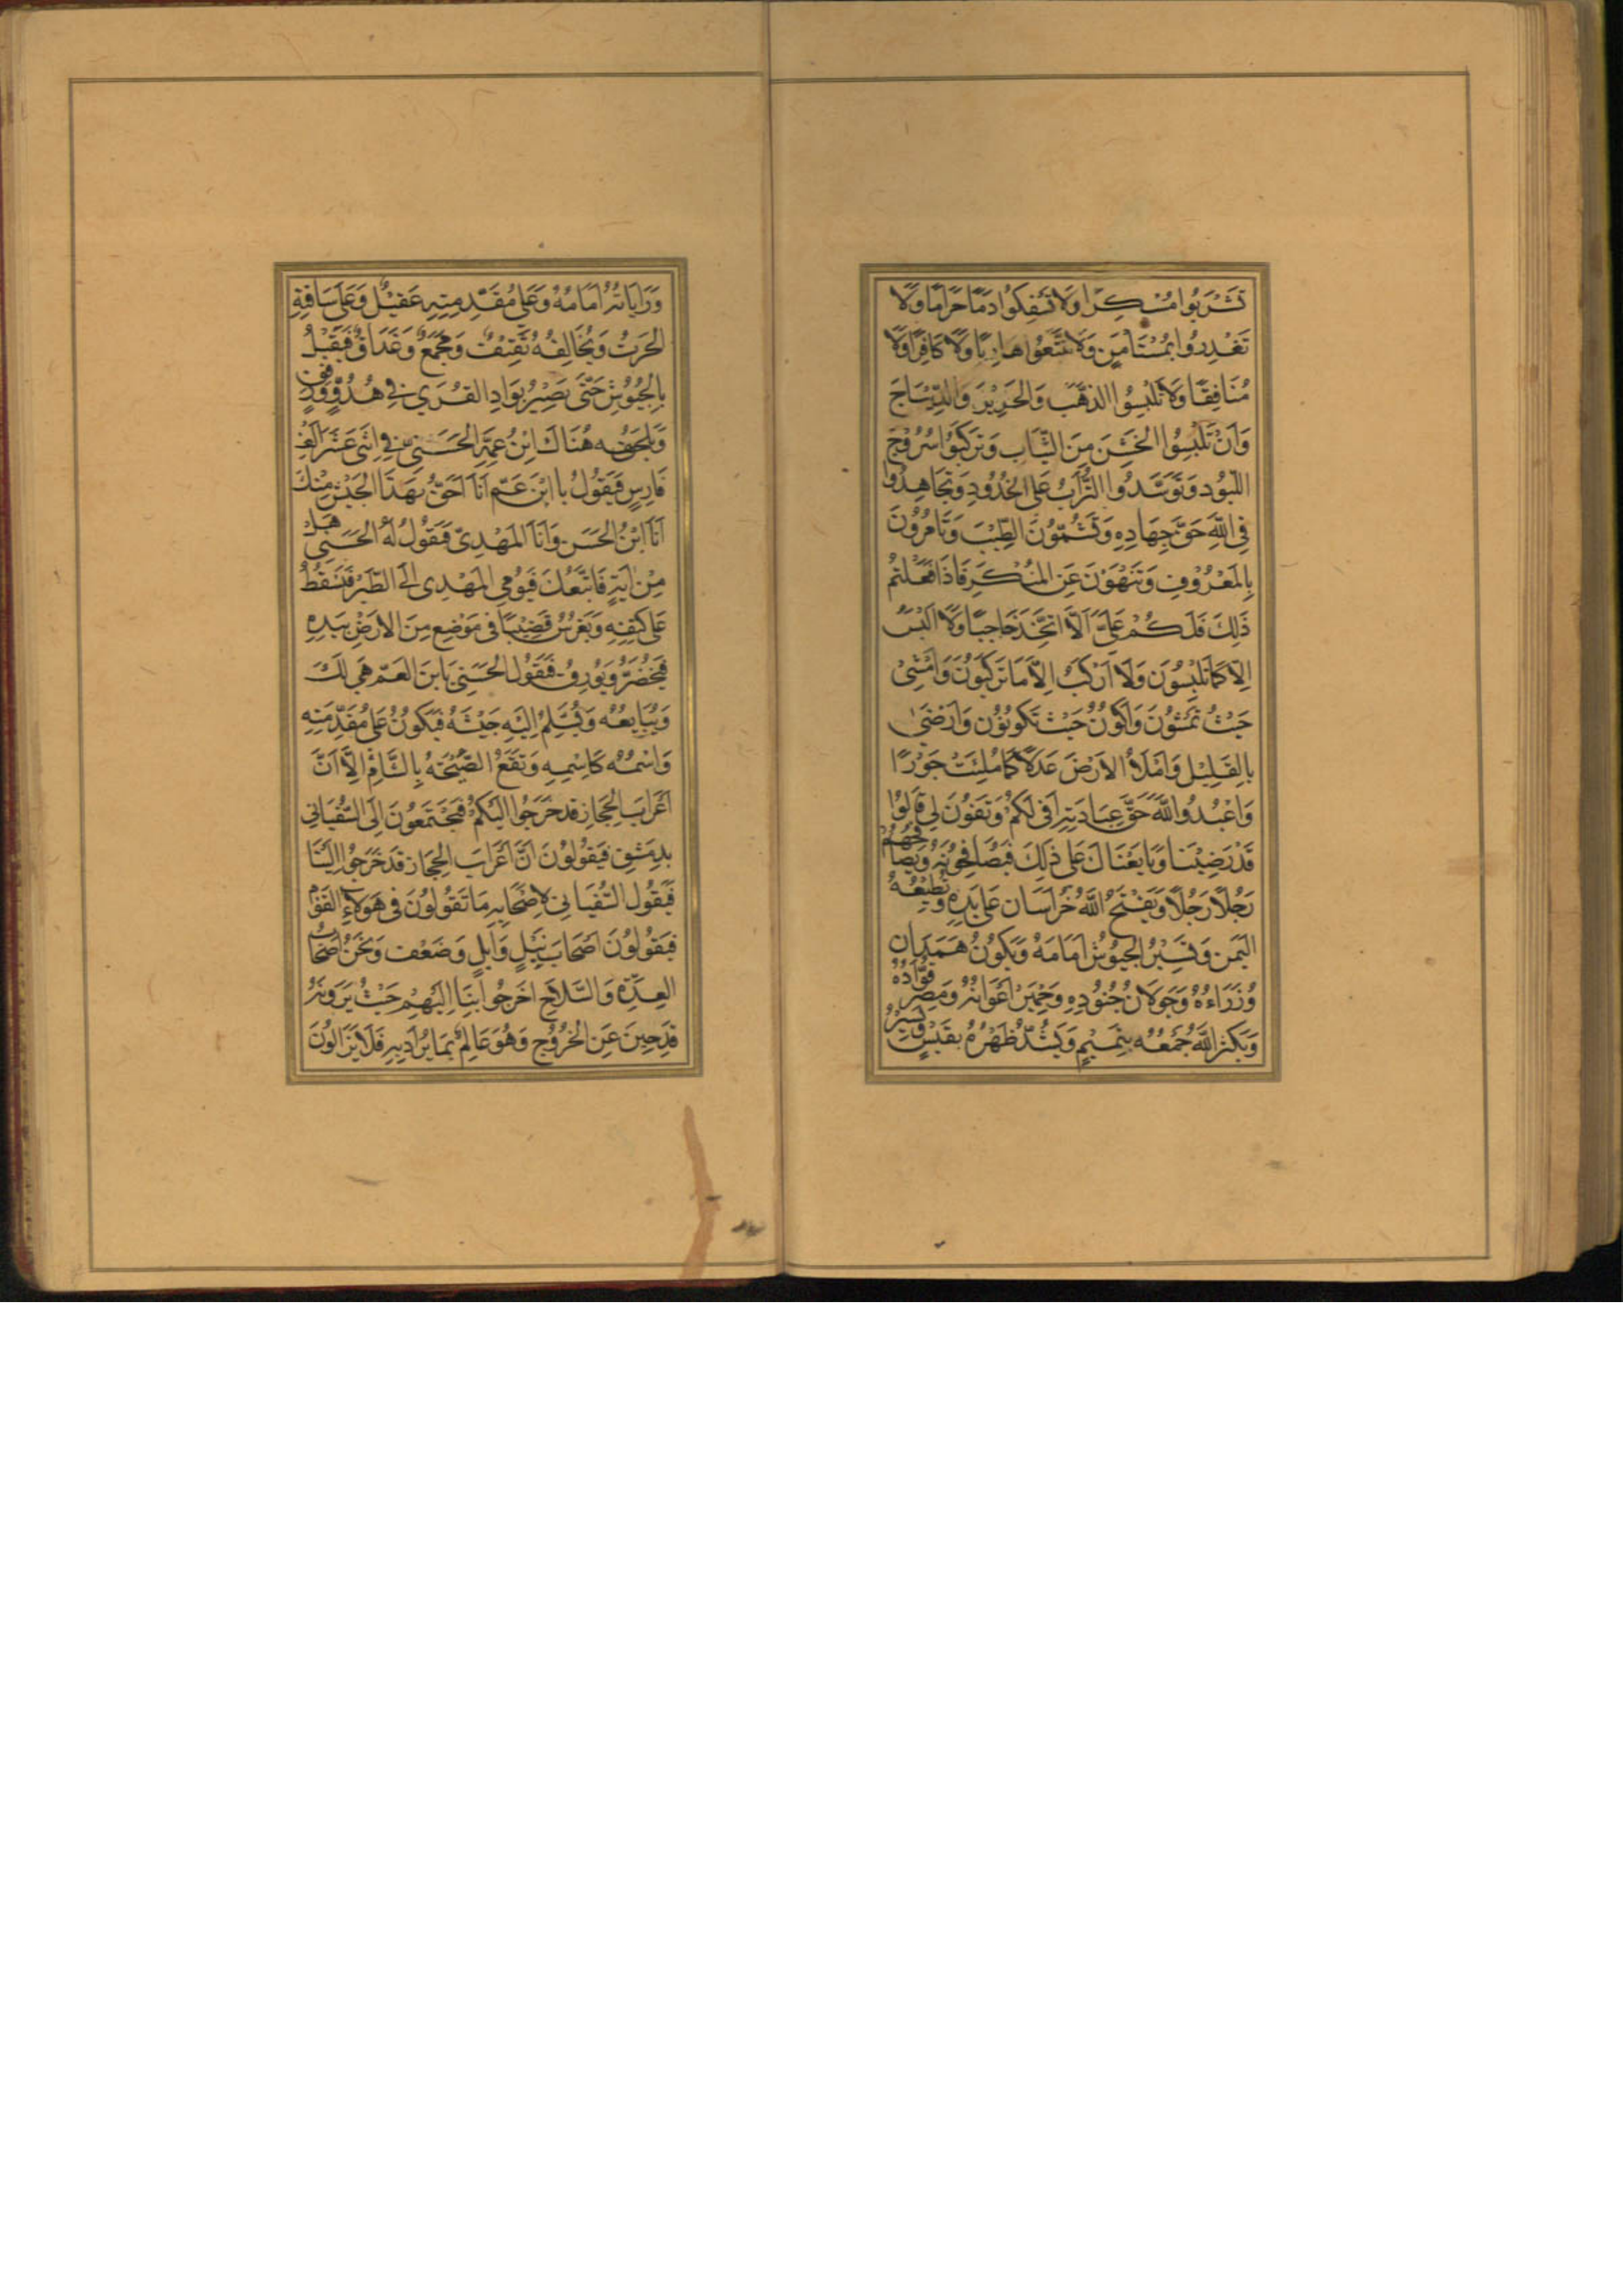 تَشْرَبُوا مُسْكِرًا وَلَا تَسْفِكُوا دَمًا حَرَامًا وَلَا
تَغْدِرُوا بِمُسْتَامِنٍ وَلَا تَتَّبِعُوا هَارِبًا وَلَا كَافِرًا وَلَا
مُنَافِقًا وَلَا تَلْبِسُوا الذَهَبَ وَالْحَرِيْرَ وَالدِّيْبَاجَ
وَاَنْ تَلْبِسُوا الخَشِنَ مِنَ الثِّيَابِ وَتَرْكَبُوا سُرُوْجَ
اللبُوْدِ وَتَوَسَّدُوا التُّرَابَ عَلَى الخُدُوْدِ وَتُجَاهِدُوا
فِى اللهِ حَقَّ جِهَادِهِ وَتَشُمُّوْنَ الطِّيْبَ وَتَامُرُوْنَ
بِالْمَعْرُوْفِ وَتَنْهَوْنَ عَنِ المُنْكَرِ فَاذَا فَعَلْتُمْ
ذَلِكَ فَلَكُمْ عَلَىَّ اَلَّا اتَّخِذَ حَاجِبًا وَلَا اَلْبَسَ
اِلَّا كَمَا تَلْبِسُوْنَ وَلَا اَرْكَبَ اِلَّا مَا تَرْكَبُوْنَ وَاَمْشِىْ
حَيْثُ تَمْشُوْنَ وَاَكُوْنُ حَيْثُ تَكُوْنُوْنَ وَاَرْضَىٰ
بِالقَلِيْلِ وَاَمْلَاُ الاَرْضَ عَدْلًا كَمَا مُلِئَتْ جَوْرًا
وَاَعْبُدُ واللهَ حَقَّ عِبَادَتِهِ اَفى لَكُمْ وَتَفُوْنَ لِى قَالُوْا
قَدْ رَضِيْنَا وَبَايَعْنَاكَ عَلَى ذٰلِكَ فَيُصَافِحُوْنَهُ وَيُصَافِحُهُمْ
رَجُلًا رَجُلًا وَيَفْتَحُ اللهُ خُرَاسَانَ عَلَى يَدِهِ وَتُطِيْعُهُ
اليَمَنُ وَتَسِيْرُ الجُيُوْشُ اَمَامَهُ وَيَكُوْنُ هَمَدَانُ
وُزَرَاءَهُ وَخَوْلَانُ جُنُوْدَهُ وَحِمْيَرُ اَعْوَانَهُ وَمِصْرُ قُوَّادُهُ
وَيُكْثِرُ اللهُ جَمْعَهُ بِتَمِيْمٍ وَيَشُدُّ ظَهْرَهُ بِقَيْسٍ وَيَسِيْرُ
وَرَايَاتُهُ اَمَامَهُ وَعَلَى مُقَدِّمَتِهِ عَقِيْلٌ وَعَلَى سَاقَتِهِ
الحَرْثُ وَيُخَالِفُهُ ثَقِيْفٌ وَمُجَمِّعٌ وَغَدَاقٌ فَيُقْبِلُ
بِالْجُيُوْشِ حَتَّى يَصِيْرَ بِوَادِ القُرَى فِى هُدُوٍّ وَرِفْقٍ
وَيَلْحَقُهُ هُنَاكَ ابْنُ عَمِّهِ الحَسَنِىُّ فِى اثْنَى عَشَرَ اَلْفَ
فَارِسٍ فَيَقُوْلُ يا ابْنَ عَمِّ اَنَا اَحَقُّ بِهَذَا الجَيْشِ مِنْكَ
اَنَا ابْنُ الحَسَنِ وَاَنَا المَهْدِىّ فَيَقُوْلُ لَهُ الحَسَنِىُّ هَلْ
مِنْ ايَةٍ فَاَتَّبِعَكَ فَيُوْمِى المَهْدِى اِلَى الطَّيْرِ فَتَسْقُطُ
عَلَى كَتِفِهِ وَيَغْرِسُ قَضِيْبًا فِى مَوْضِعٍ مِنَ الاَرْضِ بِيَدِهِ
فَيَخْضَرُّ وَيُوْرِقُ فَيَقُوْلُ الحَسَنِىُّ يَا بنَ العَمّ هِىَ لَكَ
وَيُبَايِعُهُ وَيُسَلِّمُ اِلَيْهِ جَيْشَهُ فَيَكُوْنُ عَلَى مُقَدِّمَتِهِ
وَاسْمُهُ كَاِسْمِهِ وَتَقَعُ الصَّيْحَةُ بِالشَّامِ اَلَا اَنَّ
اَعْرَابَ الحِجَازِ قَدْ خَرَجُوا اِلَيْكُمْ فَيَجْتَمِعُوْنَ اِلَى السُّفْيَانِى
بِدِمَشْقَ فَيَقُوْلُوْنَ اَنَّ اَعْرَابَ الحِجَازِ قَدْ خَرَجُوْا اِلَيْنَا
فَيَقُوْلُ السُّفْيَانِى لِاَصْحَابِهِ مَا تَقُوْلُوْنَ فِى هَوُلَاءِ القَوْمِ
فَيَقُوْلُوْنَ اَصْحَابُ نَبْلٍ وَاِبِلٍ وَضَعْفٍ وَنَحْنُ اَصْحَابُ
العِدَّةِ وَالسِّلَاحِ اخْرُجُوا بِنَا اِلَيْهِمْ حَيْثُ يَرَوْنَهُ
قَدْ جَبُنَ عَنِ الْخُرُوْجِ وَهُوَ عَالِمٌ بِمَا يُرَادُ بِهِ فَلَا يَزَالُوْنَ